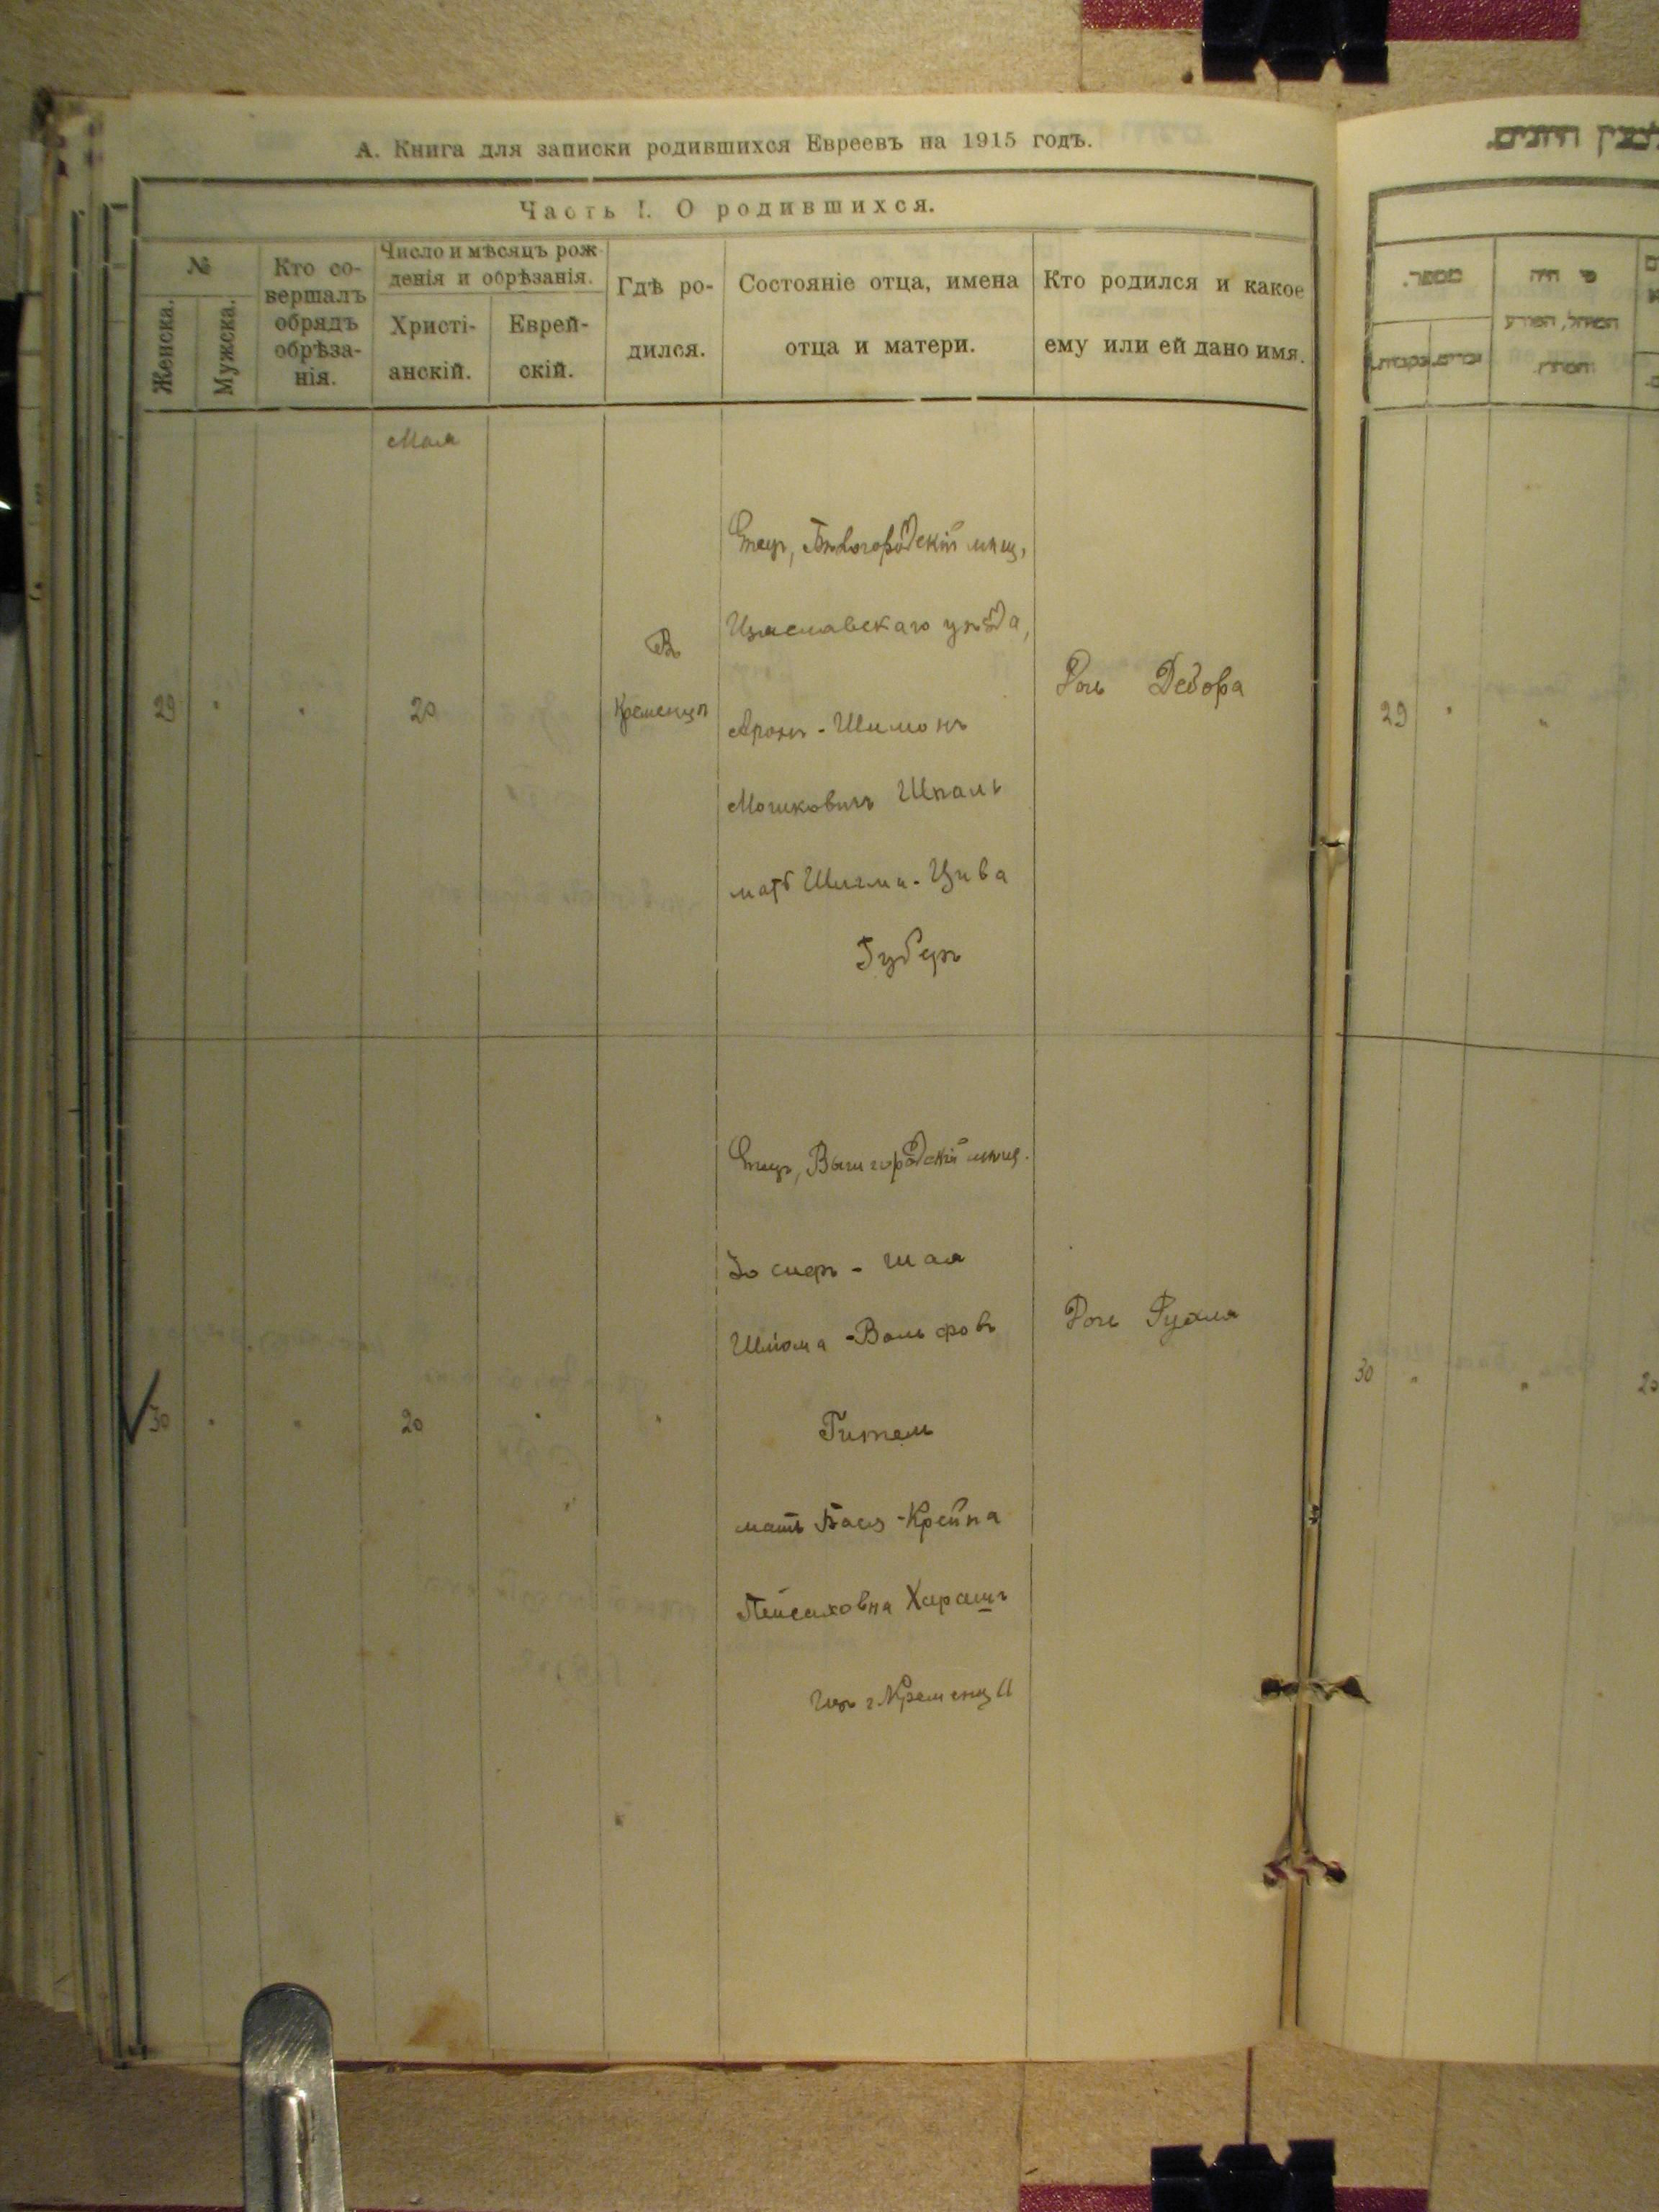 А. Книга для записки родившихся Евреевъ на 1915 годъ.
Часть I. О родившихся.
№
Женска.
Мужска.
Кто со-
вершалъ
обрядъ
обрѣза-
нія.
Число и мѣсяцъ рож
денія и обрѣзанія.
Христі-
анскій.
Еврей-
скій.
Гдѣ ро-
дился.
Состояніе отца, имена
отца и матери.
Кто родился и какое
ему или ей дано имя.
Мая
29
"
"
20
Въ
Кременцѣ
Отецъ, Бѣлогородскій мѣщ.
Изяславскаго уѣзда,
Аронъ-Шимонъ
Мошковичъ Шпаль
мать Цива
Губеръ
Дочь Дебора
30
"
"
20
"
"
Отецъ, Вышгородскій мѣщ.
Іосифъ-Шая
Шліома-Вольфовъ
Гительм
мать Бася-Крейна
Пейсаховна Харашъ
изъ г. Кременца
Дочь Рухля
מספר.
מי היה
המוהל, הפורע
29
"
"
30
"
"
20